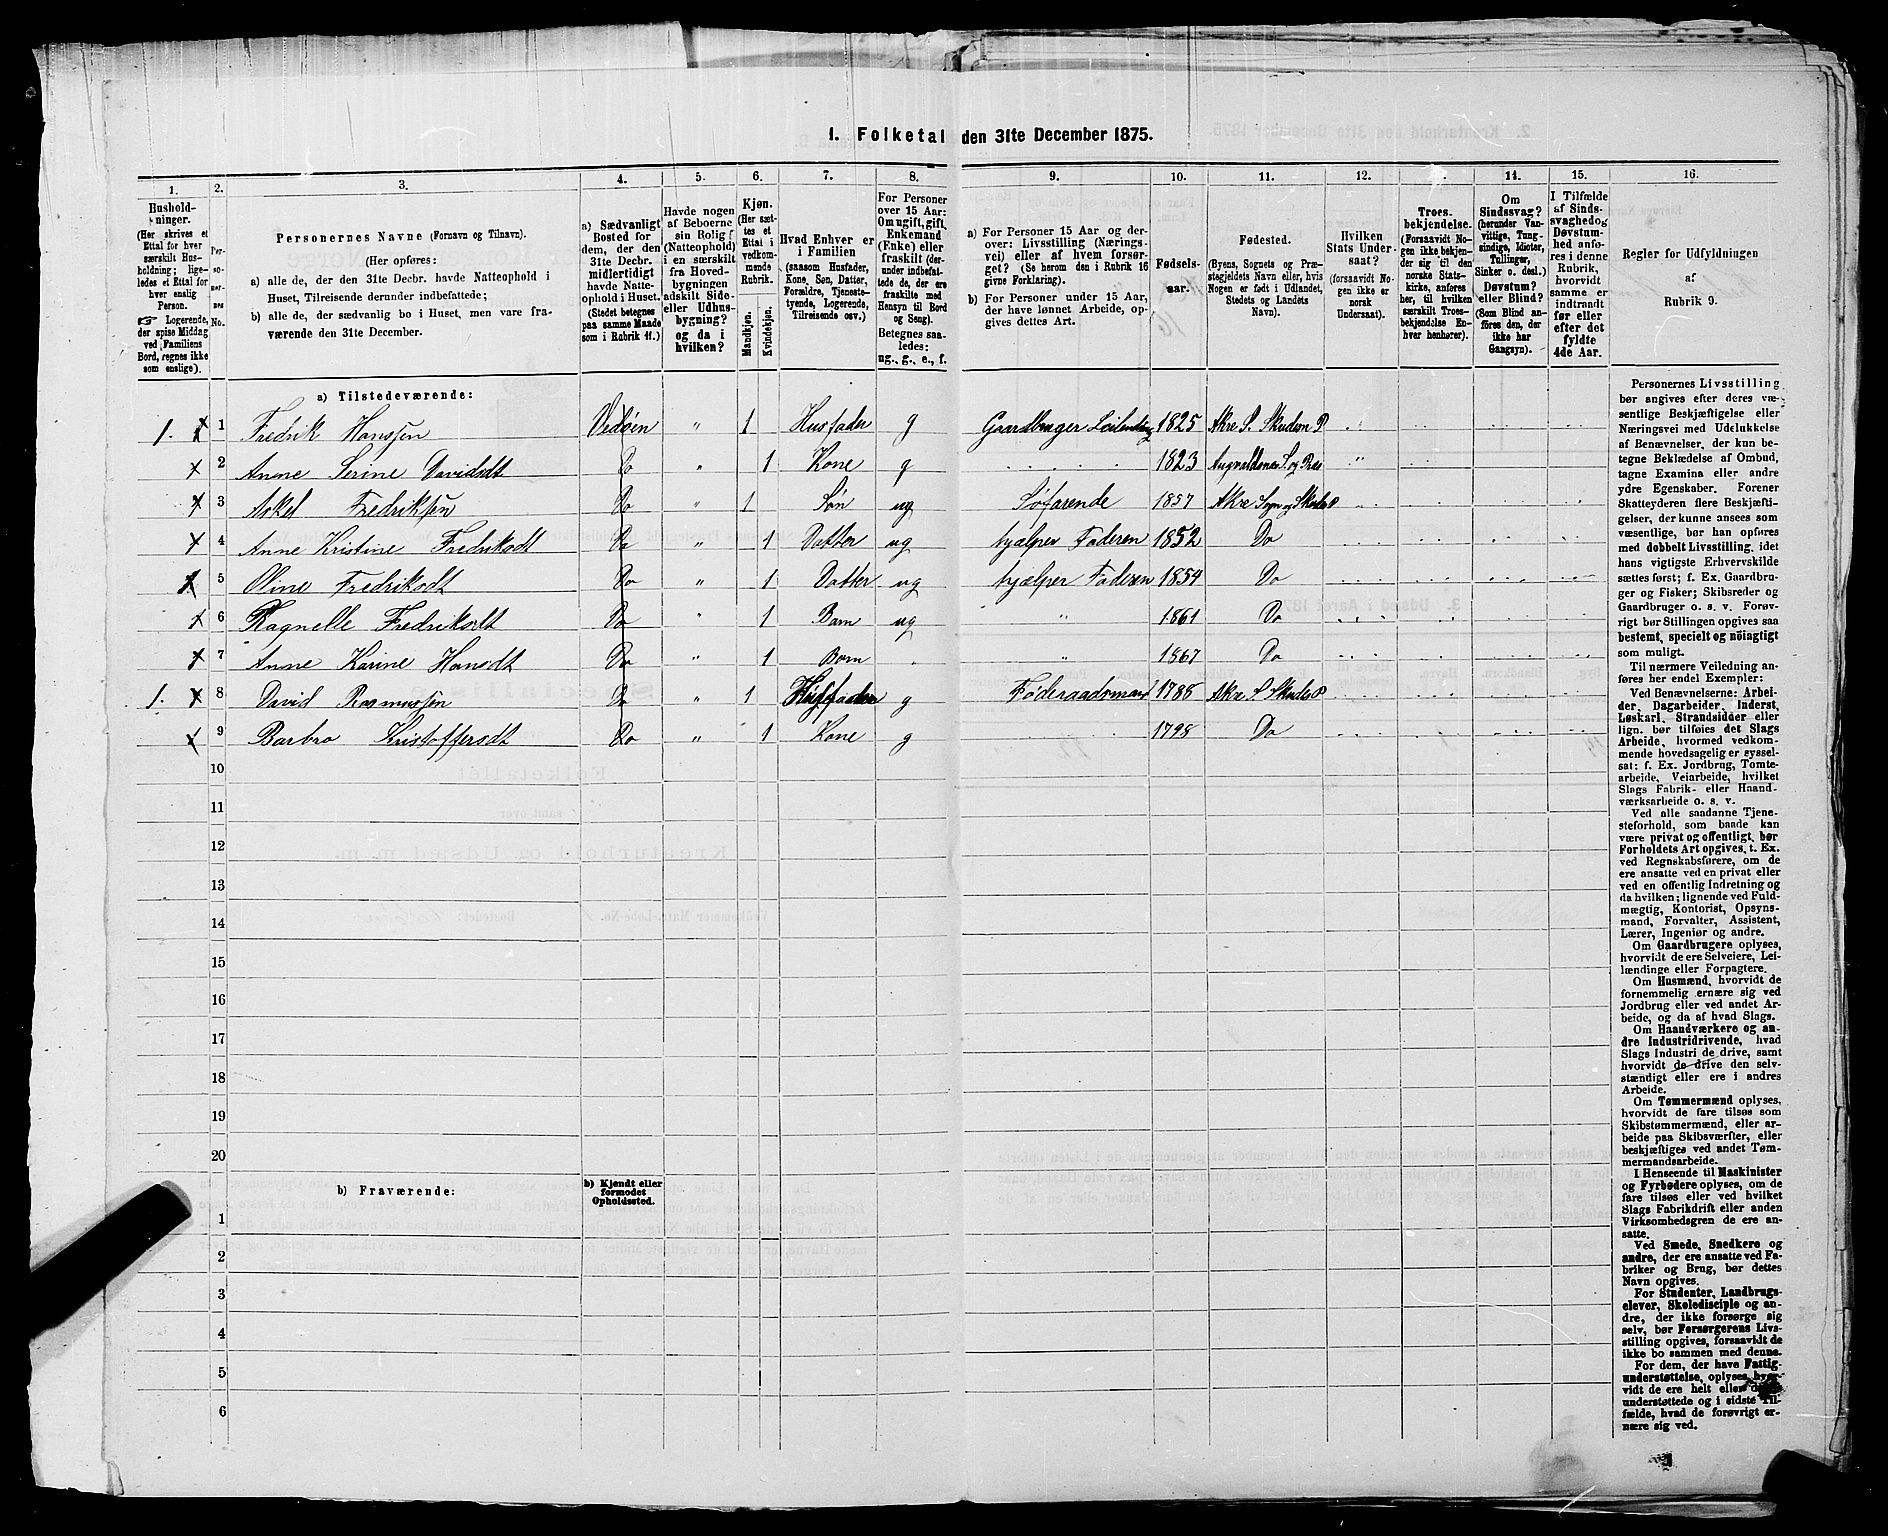 1. Folketal den 31te December 1875.
1. 2. 3. 4. 5. 6. 7. 8. 9. 10. 11. 12. 14. 15. 16.
Hushold-
ninger.
(Her skrives et
Ettal for hver
særskilt Hus-
holdning; lige-
ledes et Ettal for
hver enslig
Person.
☞ Logerende,
der spise Middag
ved Familiens
Bord, regnes ikke
som enslige).
Per-
so-
ner-
nes
No.
Personernes Navne (Fornavn og Tilnavn).
(Her opføres:
a) alle de, der den 31te Decbr. havde Natteophold i
Huset, Tilreisende derunder indbefattede;
b) alle de, der sædvanlig bo i Huset, men vare fra-
værende den 31te December.
a) Sædvanligt
Bosted for
dem, der den
31te Decbr.
midlertidigt
havde Natte-
ophold i Huset.
(Stedet betegnes
paa samme Maade
som i Rubrik 11.)
Havde nogen
af Beboerne
sin Bolig
(Natteophold)
i en særskilt
fra Hoved-
bygningen
adskilt Side-
eller Udhus-
bygning?
og da i
hvilken?
Kjøn.
(Her sæt-
tes et
Ettal i
vedkom-
mende
Rubrik.
Mandkjøn.
Kvindekjøn.
Hvad Enhver er
i Familien
(saasom Husfader,
Kone, Søn, Datter,
Forældre, Tjeneste-
tyende, Logerende,
Tilreisende osv.)
For Personer
over 15 Aar:
Om ugift, gift,
Enkemand
(Enke) eller
fraskilt (der-
under indbefat-
tede de, der ere
fraskilte med
Hensyn til Bord
og Seng).
Betegnes saa-
ledes:
ug., g., e., f.
a) For Personer 15 Aar og der-
over: Livsstilling (Nærings-
vei) eller af hvem forsør-
get? (Se herom den i Rubrik 16
givne Forklaring).
b) For Personer under 15 Aar,
der have lønnet Arbeide, op-
gives dettes Art.
Fødsels-
aar.
Fødested.
(Byens, Sognets og Præ-
stegjeldets Navn eller, hvis
Nogen er født i Udlandet,
Stedets og Landets
Navn).
Hvilken
Stats Under-
saat?
(forsaavidt No-
gen ikke er
norsk
Undersaat).
Troes-
bekjendelse.
(Forsaavidt No-
gen ikke bekjen-
der sig til den
norske Stats-
kirke, anføres
her, til hvilken
særskilt Troes-
bekjendelse En-
hver henhører).
Om
Sindssvag?
(herunder Van-
vittige, Tung-
sindige, Idioter,
Tullinger,
Sinker o. desl.)
Døvstum?
eller Blind?
(Som Blind an-
føres den, der
ikke har
Gangsyn).
I Tilfælde
af Sinds-
svaghed og
Døvstum-
hed anfø-
res i denne
Rubrik,
hvorvidt
samme er
indtraadt
før eller
efter det
fyldte
4de Aar.
Regler for Udfyldningen
af
Rubrik 9.
a) Tilstedeværende:
1. 1 Fredrik Hanssen Vedøen " 1 Husfader g Gaardbruger Leilending 1825 Akre S. Skuden P
2 Anne Serine Davidsdt Do " 1 Kone g 1823 "
3 Askel Fredriksen Do " 1 Søn ug Søfarende 1857 Akre Sogn og
4 Anne Kristine Fredriksdt Do " 1 Datter ug hjælper Faderen 1852 Do
5 Oline Fredriksdt Do " 1 Datter ug hjælper Faderen 1854 Do
6 Ragnelle Fredriksdt Do " 1 Barn ug " 1861 Do
7 Anne Karine Hansdt Do " 1 Barn " " 1867 Do
1. 8 David Rasmussen Do " 1 Husfader g Føderaadsmand 1788 Akre S
9 Barbro Kristoffersdt Do " 1 Kone g 1798 Do
10
11
12
13
14
15
16
17
18
19
20
b) Fraværende:
b) Kjendt eller
formodet
Opholdssted.
1
2
3
4
5
6
Personernes Livsstilling
bør angives efter deres væ-
sentlige Beskjæftigelse eller
Næringsvei med Udelukkelse
af Benævnelser, der kun be-
tegne Beklædelse af Ombud,
tagne Examina eller andre
ydre Egenskaber. Forener
Skatteyderen flere Beskjæfti-
gelser, der kunne ansees som
væsentlige, bør han opføres
med dobbelt Livsstilling, idet
hans vigtigste Erhvervskilde
sættes først; f. Ex. Gaardbru-
ger og Fisker; Skibsreder og
Gaardbruger o. s. v. Forøv-
rigt bør Stillingen opgives saa
bestemt, specielt og nöiagtigt
som muligt.
Til nærmere Veiledning an-
føres her endel Exempler:
Ved Benævnelserne: Arbei-
der, Dagarbeider, Inderst,
Løskarl, Strandsidder eller
lign. bør tilføies det Slags
Arbeide, hvormed vedkom-
mende hovedsagelig er syssel-
sat; f. Ex. Jordbrug, Tomte-
arbeide, Veiarbeide, hvilket
Slags Fabrik- eller Haand-
værksarbeide o. s. v.
Ved alle saadanne Tjene-
steforhold, som baade kan
være privat og offentligt, bør
Forholdets Art opgives, t. Ex.
ved Regnskabsførere, om de
ere ansatte ved en privat eller
ved en offentlig Indretning og
da hvilken; lignende ved Fuld-
mægtig, Kontorist, Opsyns-
mand, Forvalter, Assistent,
Lærer, Ingeniør og andre.
Om Gaardbrugere oplyses,
hvorvidt de ere Selveiere, Lei-
lændinge eller Forpagtere.
Om Husmænd, hvorvidt de
fornemmelig ernære sig ved
Jordbrug eller ved andet Ar-
beide, og da af hvad Slags.
Om Haandværkere og an-
dre Industridrivende, hvad
Slags Industri de drive, samt
hvorvidt de drive den selv-
stændigt eller ere i andres
Arbeide.
Om Tømmermænd oplyses,
hvorvidt de fare tilsøs som
Skibstømmermænd, eller ar-
beide paa Skibsværfter, eller
beskjæftiges ved andet Tøm-
mermandsarbeide.
I Henseende til Maskinister
og Fyrbødere oplyses, om de
fare tilsøs eller ved hvilket
Slags Fabrikdrift eller anden
Virksomhedsgren de ere an-
satte.
Ved Smede, Snedkere og
andre, der ere ansatte ved Fa-
briker og Brug, bør dettes
Navn opgives.
For Studenter, Landbrugs-
elever, Skoledisciple og an-
dre, der ikke forsørge sig
selv, bør Forsørgerens Livs-
stilling opgives, forsaavidt de
ikke bo sammen med denne.
For dem, der have Fattig-
understøttelse, oplyses, hvor-
vidt de ere helt eller
understøttede og i sidste Til-
fælde, hvad de forøvrigt er-
nære sig ved.